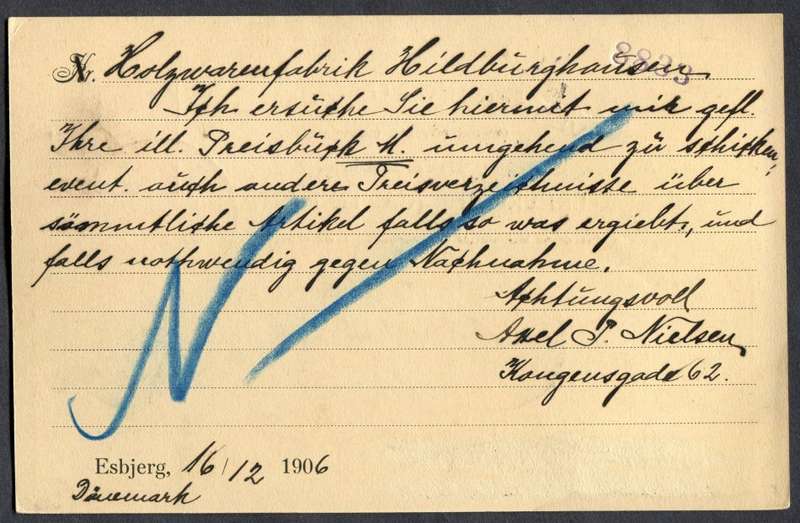 8833
N. Holzwarenfabrik Hildburghausen
Ich ersuche Sie hiermit mir gefl.
Ihre ill. Preisbuch H. umgehend zu schicken,
event. auch andere Preisverzeichnisse über
sämmtliche Artikel falls so was ergiebt, und
falls nothwendig gegen Nachnahme.
Achtungsvoll
Axel P. Nielsen
Kongensgade 62.
N
Esbjerg, 16/12 1906
Dänemark